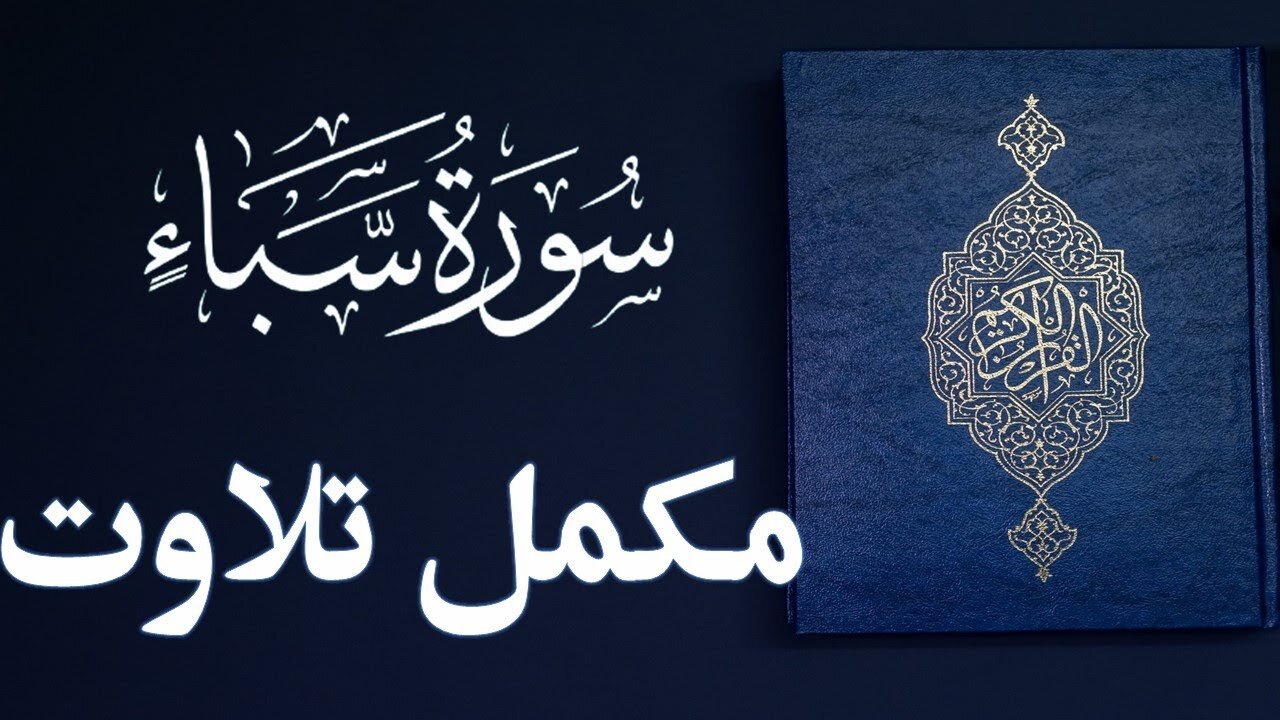 سُورَةُ سَبَّاءٍ
مکمل تلاوت
القرآن الكريم